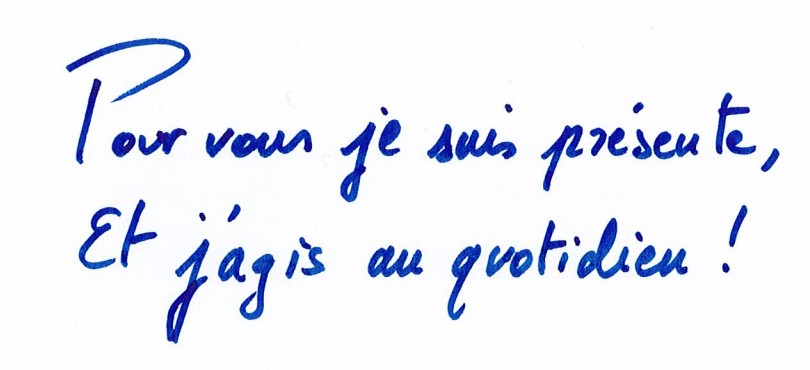 Pour vous je suis présente,
Et j'agis au quotidien !